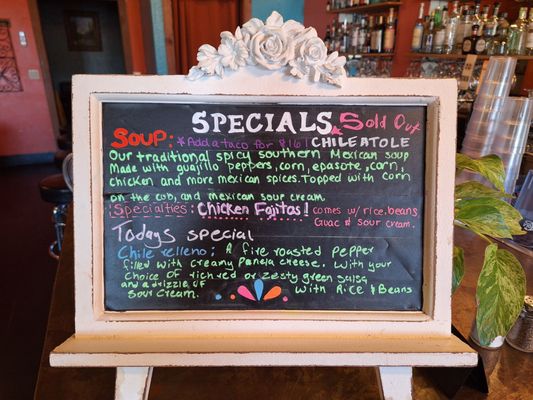 SPECIALS Sold Out
Soup: *Add a taco for $16! CHILEATOLE
Our traditional spicy southern Mexican soup
Made with guajillo peppers, corn, epasote, corn,
chicken and more mexican spices. Topped with corn
on the cob, and mexican sour cream.
Specialties: Chicken Fajitas! comes w/ rice, beans
Guac & sour cream.
Todays special
Chile relleno: A fire roasted pepper
filled with creamy Panela cheese. With your
choice of rich red or zesty green salsa
and a drizzle of
Sour Cream. With Rice & Beans